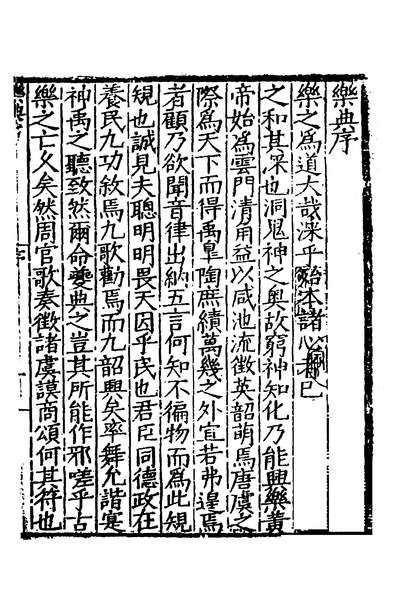 樂典序
樂之爲道大哉深乎始本諸心者已
之和其深也洞鬼神之奥故窮神知化乃能興樂黄
帝始爲雲門清角益以咸池流徵英韶萌焉唐虞之
際爲天下而得禹臯陶庶績萬幾之外宜若弗遑焉
者顧乃欲聞音律出納五言何知不徧物而爲此規
規也誠見夫聰明明畏天因乎民也君臣同德政在
養民九功敘焉九歌勸焉而九韶興矣率舞允諧寔
神禹之聽致然爾命夔典之豈其所能作邪嗟乎古
樂之亡久矣然周官歌奏徵諸虞謨商頌何其符也